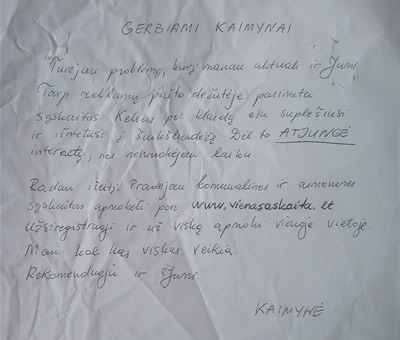 GERBIAMI KAIMYNAI
Turėjau problemą, kuri manau aktuali ir Jums.
Tarp reklamų pašto dėžutėje pasimeta
sąskaitos. Kelias per klaidą esu suplėšiusi
ir išmetusi į šiukšliadėžę. Dėl to ATJUNGĖ
internetą, nes nesumokėjau laiku.
Radau išeitį. Pradėjau komunalines ir asmenines
sąskaitas apmokėti per www.vienasaskaita.lt
Užsiregistruoji ir už viską apmoki vienoje vietoje.
Man kol kas viskas veikia.
Rekomenduoju ir Jums.
KAIMYNĖ